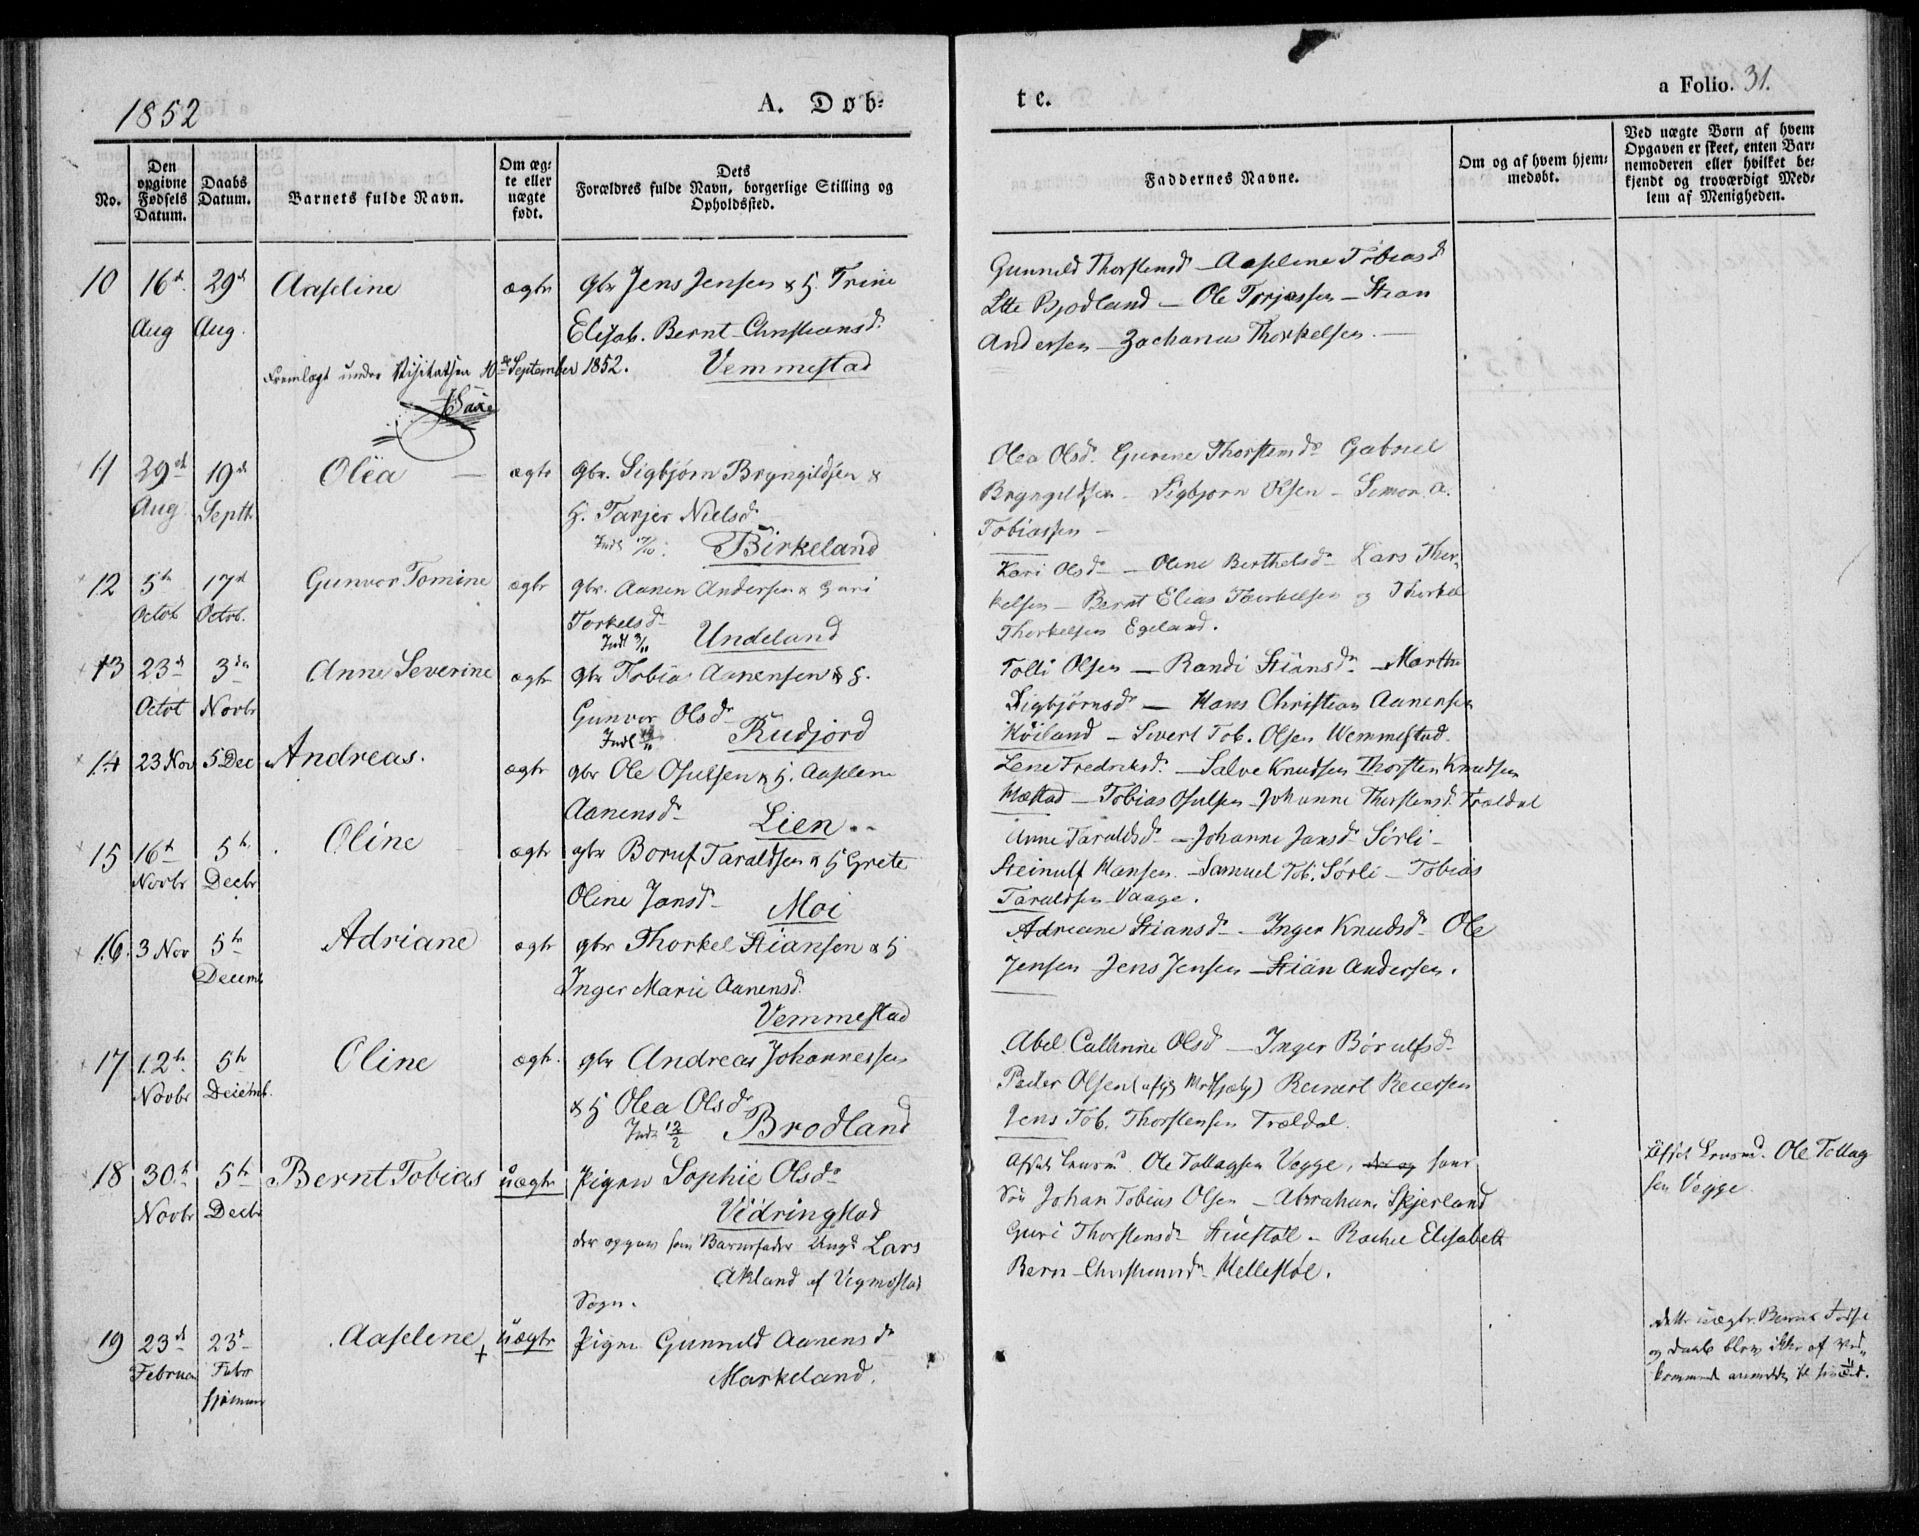 1852
A. Døb-
te.
a Folio. 31.
No.
Den opgivne Fødsels Datum.
Daabs Datum.
Barnets fulde Navn.
Om ægte eller uægte født.
Dets Forældres fulde Navn, borgerlige Stilling og Opholdssted.
Faddernes Navne.
Om og af hvem hjemmedøbt.
Ved uægte Børn af hvem Opgaven er skeet, enten Barnemoderen eller hvilket bekjendt og troværdigt Medlem af Menigheden.
10 16d Aug 29d Aug. Aaseline ægte
gbr Jens Jensen & H. Trine
Elisab. Bernt-Christiansd.
Vemmestad
Gunnild Thorstensd - Aaselene Tobiasd
Bjodland - Ole Torjussen - Stian
Andersen - Zacharias Thorkelsen.
Fremlagt under Visitatsen 10de September 1852.
11 29d Aug 19d Septb. Olea ægte
gbr. Sigbjørn Bryngildsen &
H. Tarjer Nielsd
Indl Birkeland
Olea Olsd. Gurine Thorstensd Gabriel
Bryngildsen - Sigbjørn Olsen - Simon A.
Tobiassen -
12 5te Octob 17d Octob. Gunvor Tomine ægte
gbr. Aanen Andersen & Guri
Torkelsd
Indl 3/11 Undeland
Kari Olsd - Olene Berthelsd Lars Thor-
kelsen - Bernt Elias Thorkelsen og Thorkel
Thorkelsen Egeland.
13 23d Octob 3die Novbr Anne Severine ægte
gbr Tobias Aanensen & H.
Gunvor Olsd
Indl Rudjord
Tolli Olsen - Randi Stiansd - Marthe
Sigbjørnsd - Hans Christian Aanensen
Høiland - Sivert Tob. Olsen Wemmestad.
14 23 Nov 5 Dec Andreas. ægte
gbr Ole Osulsen & H. Aaselene
Aanensd
Lien
Lene Fredriksd. - Salve Knudsen Thorsten Knudsen
Mæstad - Tobias Osulsen - Johanne Thorstensd. Trældal
15 16t Novbr 5te Decbr Oline ægte
gbr Boruf Taraldsen & H Grete
Oline Jansd
Moi
Anne Taraldsd - Johanne Jansd Sørli -
Steinulf Hansen. - Samuel Tob. Sørli - Tobias
Taraldsen Vaage.
16. 3 Nov 5te Decemb Adriane ægte
gbr Thorkel Stiansen & H
Inger Marie Aanensd.
Vemmestad
Adriane Stiansd - Inger Knudsd Ole
Jensen Jens Jensen - Stian Andersen.
17 12te Novbr 5te Decemb. Oline ægte.
gbr Andreas Johannessen
& H Olea Olsd
Indl 12/2 Brodland
Abel Cathrine Olsd - Inger Børulfsd
Peder Olsen Reinert Reiersen
Jens Tob. Thorstensen Trældal.
18 30te Novbr 5te Decbr Bernt Tobias uægte
Pigen Sophie Olsd
Vidringstad
der opgav som Barnefader Ungk Lars
Akland af Vigmostad
Sogn.
Ole Tollagsen Vegge, der og hans
Søn Johan Tobias Olsen - Abraham Skjerland
Guri Thorstensd - Rachel Elisabeth
Bern-Christiansd Hellestøl.
Ole Tollag
sen Vegge
19 23d Februar 23d Febr hjemme Aaselene + uægte
Pigen Gunnild Aanensd
Markeland.
dette uægte Barns Fødsel
og Daab blev ikke af Ved-
kommende anmeldt til sin Tid.